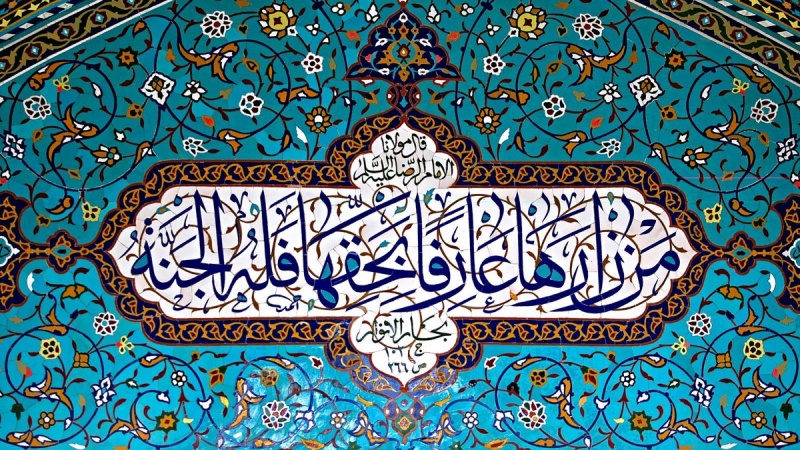 قال مولانا
الامام الرضا علیه السلام
مَنْ زارَها عَارِفًا بِحَقِّها فَلَهُ الْجَنَّةُ
بحار الانوار
ص ٢٦٦